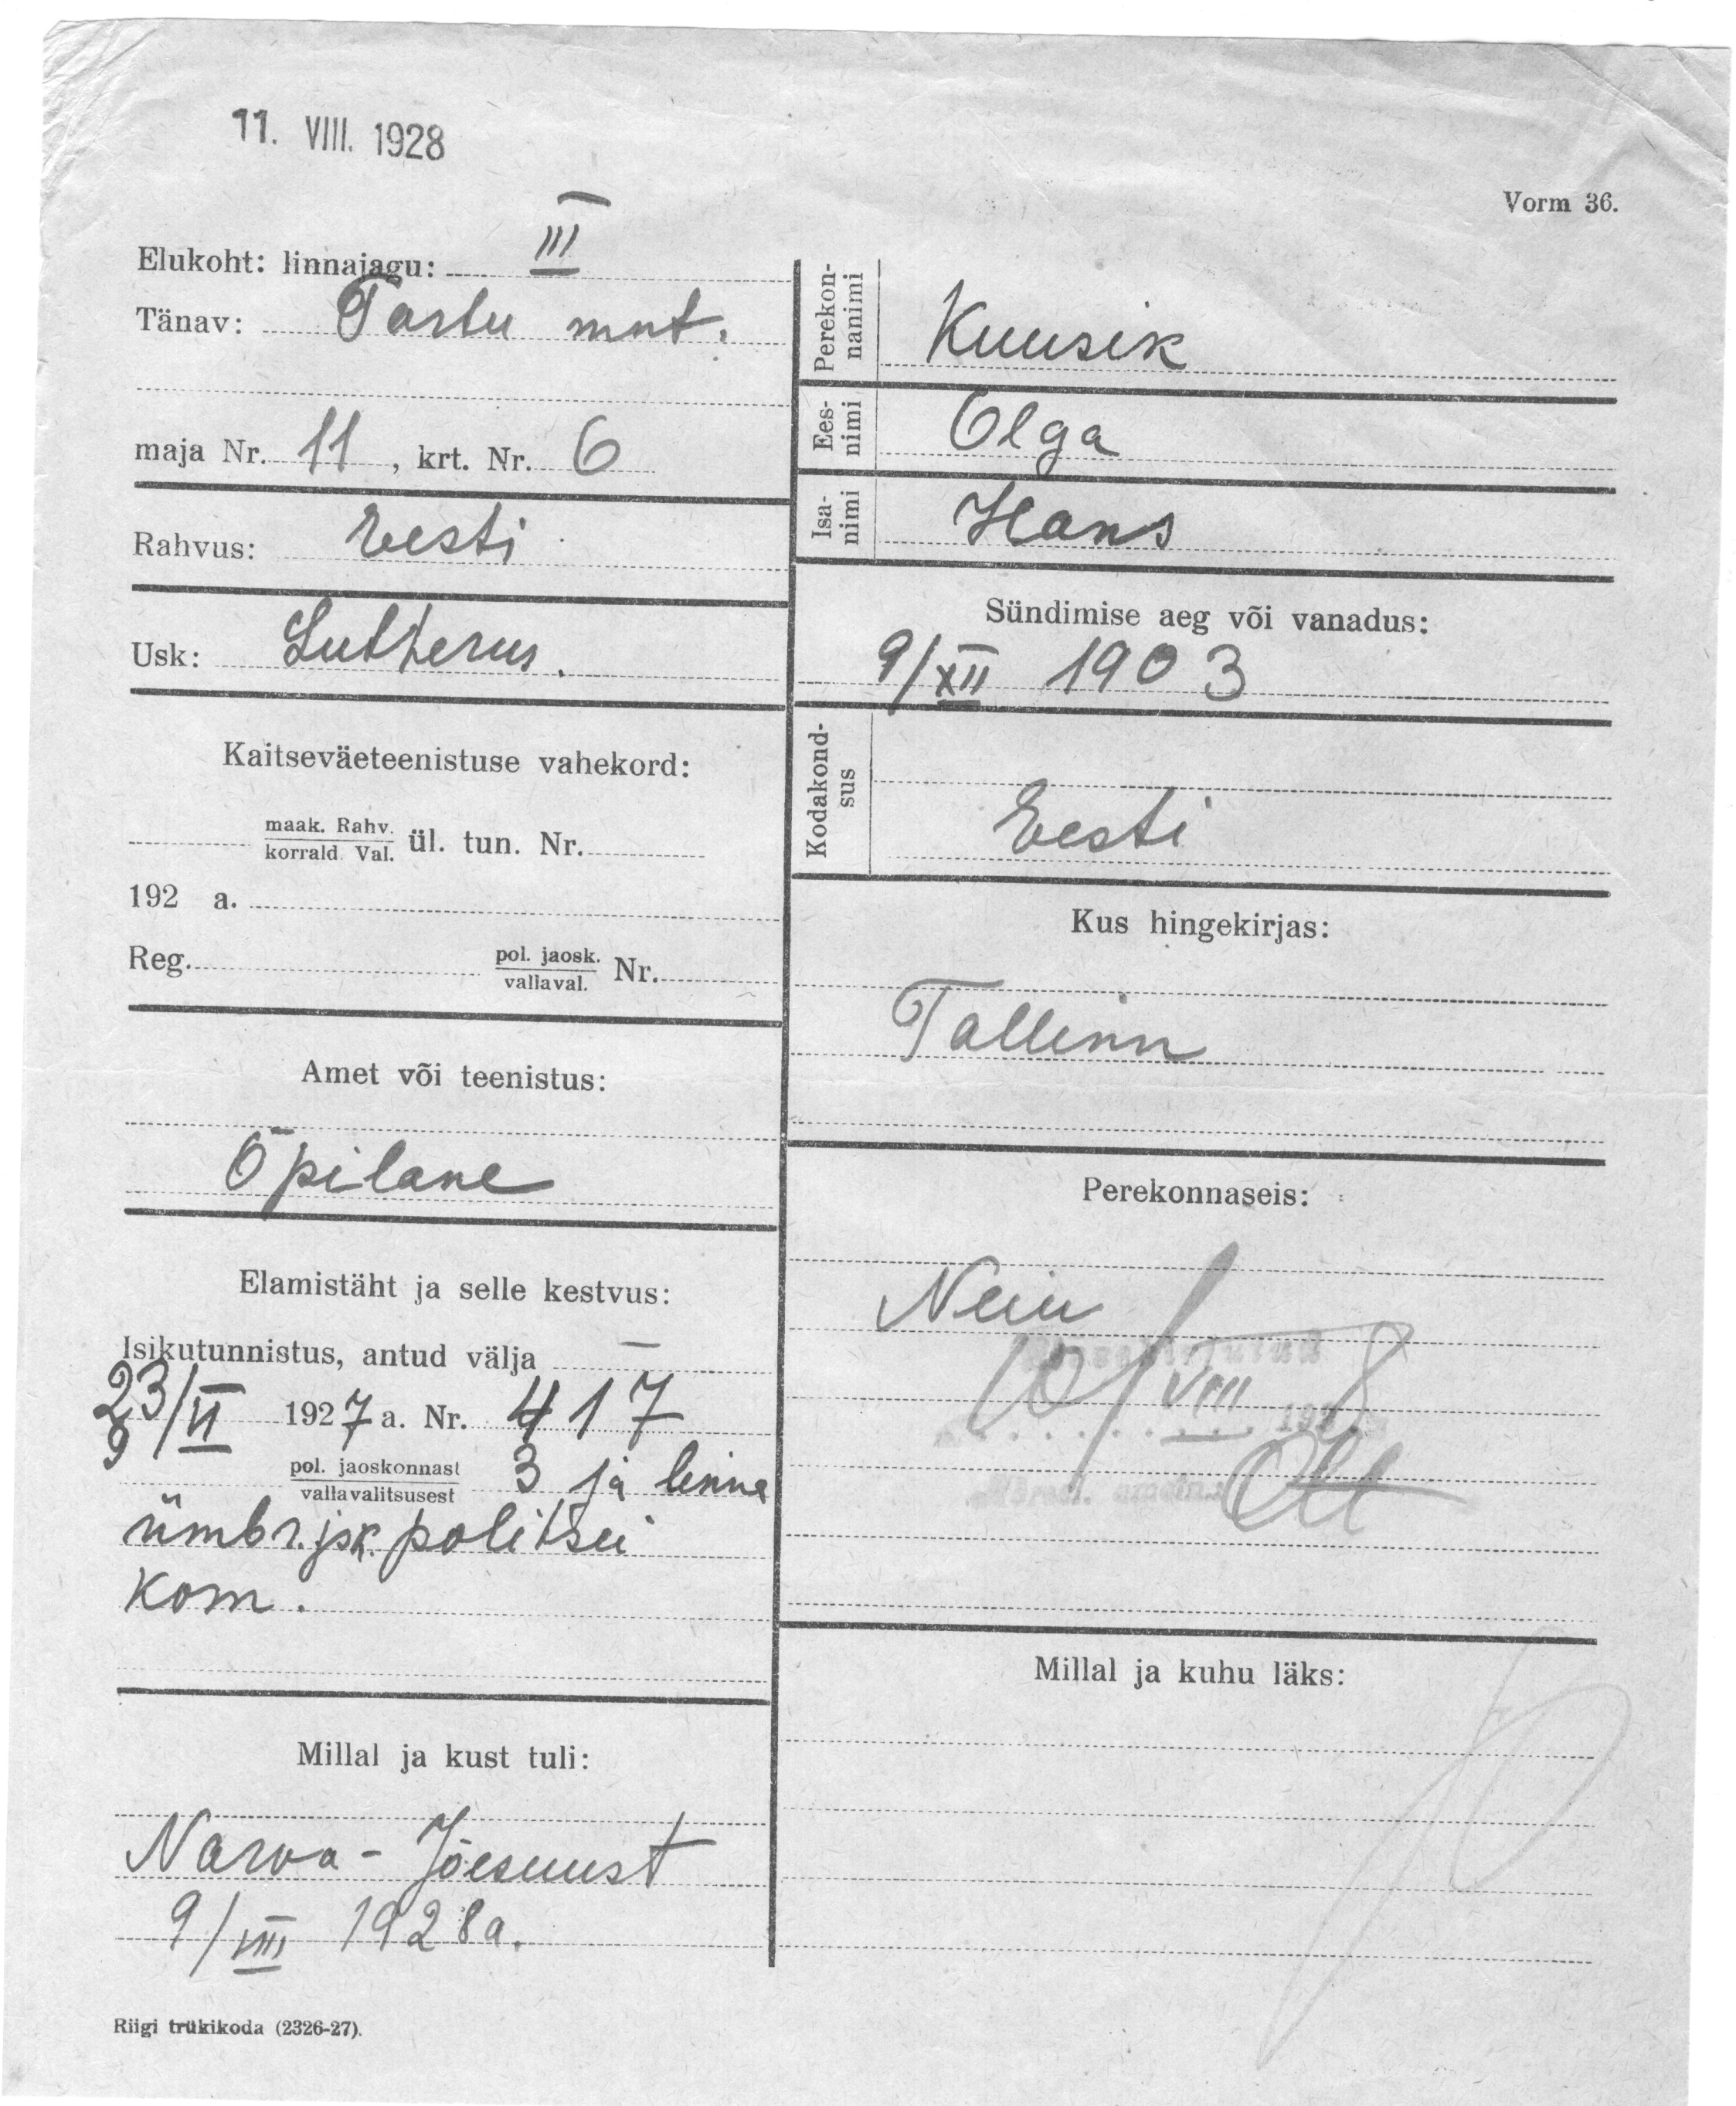 11. VIII. 1928
Vorm 36.
Elukoht: linnajagu: III
Tänav: Tartu mnt.
maja Nr. 11, krt. Nr. 6
Rahvus: Eesti
Usk: Lutherus.
Kaitseväeteenistuse vahekord:
maak. Rahv.
korrald. Val. ül. tun. Nr.
192 a.
Reg. pol. jaosk.
vallaval. Nr.
Amet või teenistus:
Õpilane
Elamistäht ja selle kestvus:
Isikutunnistus, antud välja —
23/II 1927 a. Nr. 417
9
pol. jaoskonnast
vallavalitsusest 3 ja linna
ümbr. jsk. politsei
kom.
Millal ja kust tuli:
Narva-Jõesuust
9/VIII 1928 a.
Riigi trükikoda (2326-27).
Perekonnanimi
Kuusik
Eesnimi
Olga
Isanimi
Hans
Sündimise aeg või vanadus:
9/XII 1903
Kodakondsus
Eesti
Kus hingekirjas:
Tallinn
Perekonnaseis:
Neiu
10/VIII 8
192
Millal ja kuhu läks: